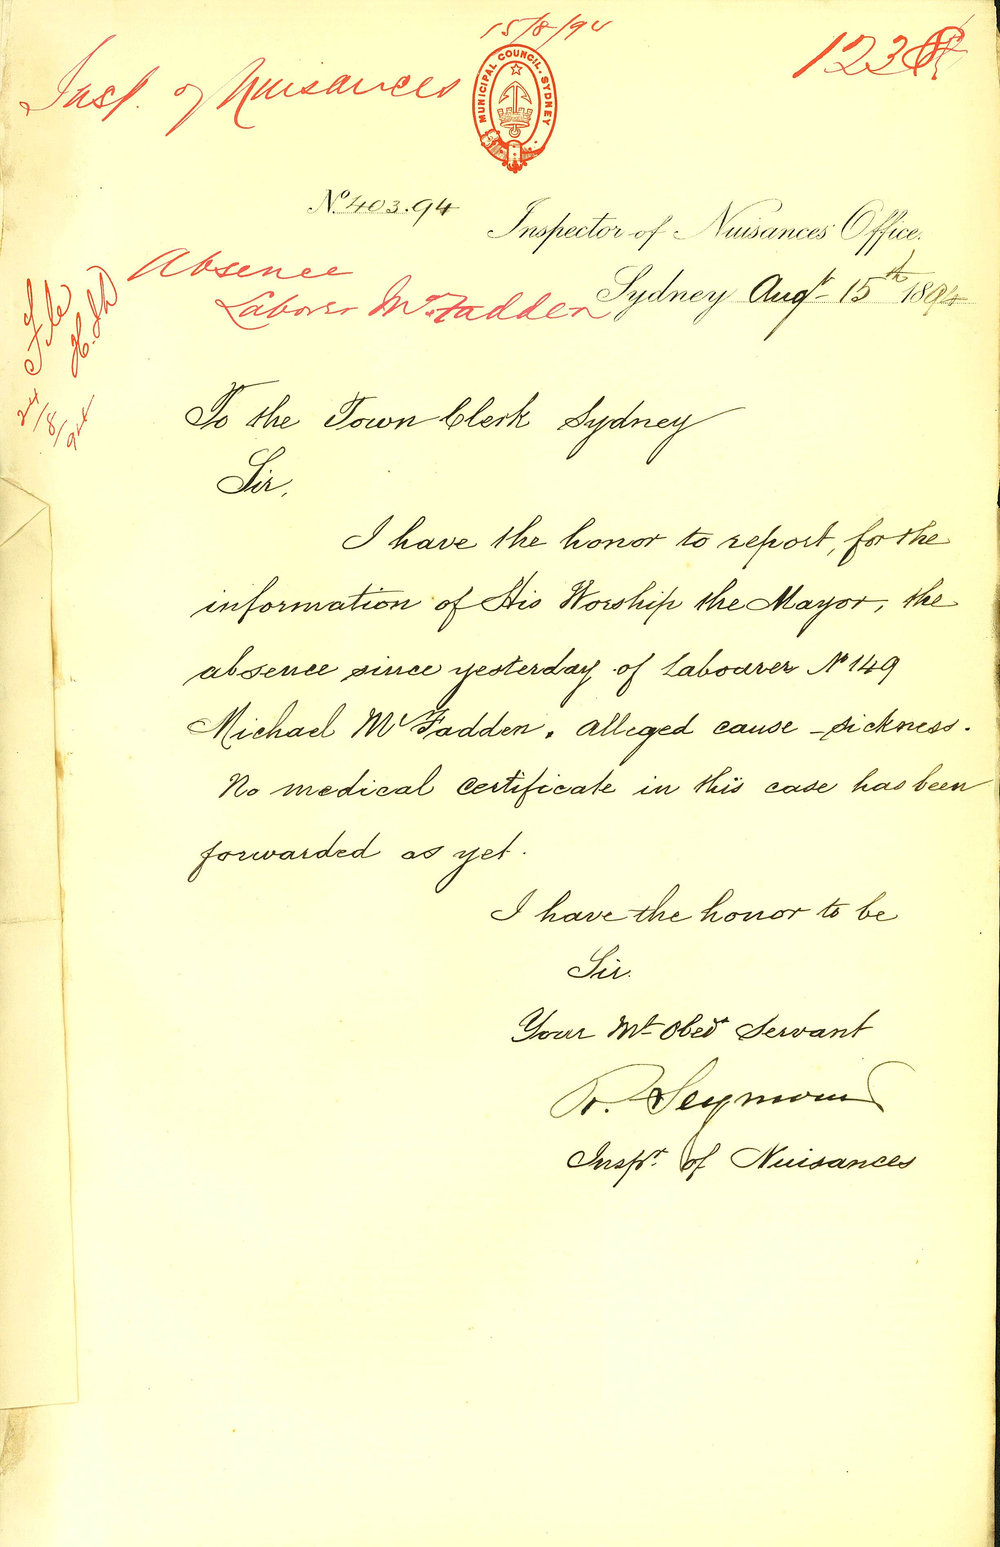 15/8/94
Insp. of Nuisances
MUNICIPAL COUNCIL. SYDNEY
No. 403.94
Inspector of Nuisances Office.
Absence
Laborer McFadden
Sydney Augt. 15th 1894
File
24/8/94
To the Town Clerk Sydney
Sir,
I have the honor to report, for the
information of His Worship the Mayor, the
absence since yesterday of Labourer No 149
Michael McFadden. Alleged cause - sickness.
No medical certificate in this case has been
forwarded as yet.
I have the honor to be
Sir.
Your Mt. Obedt Servant
R. Seymour
Inspr. of Nuisances